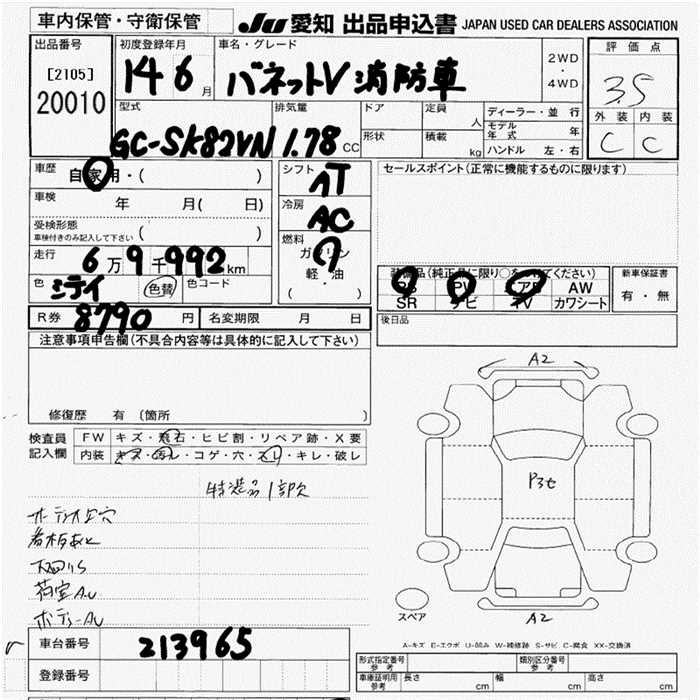 車内保管・守衛保管
JU 愛知 出品申込書 JAPAN USED CAR DEALERS ASSOCIATION
出品番号
[2105]
20010
初度登録年月
14 6 月
車名・グレード
バネットV 消防車
2WD
・
4WD
評価点
3.5
外装 内装
C C
型式
GC-SK82VN
排気量
1.78 CC
ドア
形状
定員
人
積載
kg
ディーラー・並行
モデル年式 年
ハンドル 左・右
車歴
自家用・( )
車検
年 月( 日)
受検形態
車検付きのみ記入して下さい ( )
走行
6万9千992km
色
色替
色コード
R券
8790 円
名変期限 月 日
シフト
AT
冷房
AC
燃料
ガソリン
軽・油
( )
セールスポイント(正常に機能するものに限ります)
装備品(純正品に限り○をつけてください)
PS PW エアB AW
SR ナビ TV カワシート
新車保証書
有・無
後日品
注意事項申告欄(不具合内容等は具体的に記入して下さい)
修復歴 有 (箇所 )
検査員
記入欄
FW キズ・飛石・ヒビ割・リペア跡・X要
内装 キズ・汚レ・コゲ・穴・スレ・キレ・破レ
特装品1部欠
オーディオ穴
看板あと
荷室AU
ボディーAU
A2
P3セ
A2
スペア
A-キズ E-エクボ U-凹み W-補修跡 S-サビ C-腐食 XX-交換済
車台番号
213965
登録番号
形式指定番号
参考
類別区分番号
参考
車庫証明用
参考
長さ cm 幅 cm 高さ cm